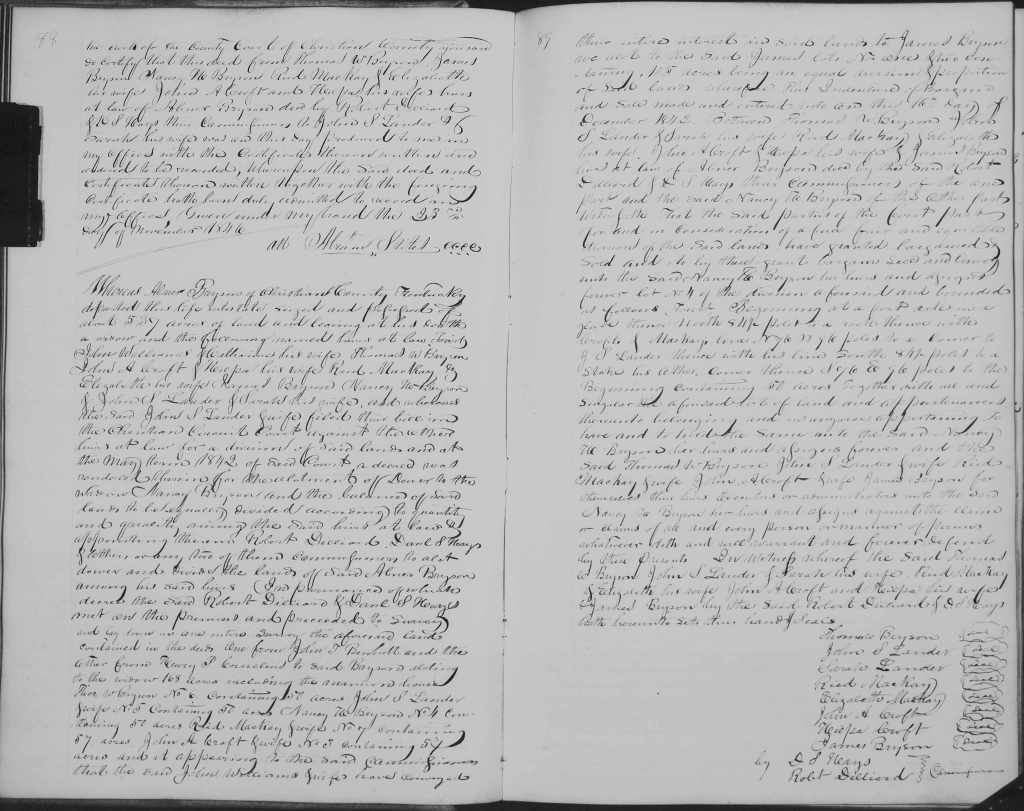 88
the clerk of the County Court of Christian County
do certify that this deed from Thomas W Bryson James
Bryson Nancy M Bryson Reid Mackay & Elizabeth
his wife John A Croft and his wife heirs
at law of Abner Bryson decd by Robert Dillard
& D S Hays their Commissioners to John S Lander &
Sarah his wife was on this day produced to me in
my office with the Certificate thereon written and
ordered to be recorded, whereupon the said deed and
Certificate thereon written together with the foregoing
Certificate hath been duly admitted to record in
my office, Given under my hand the 23rd
day of November 1846
att Abraham Stites cccc
Whereas Abner Bryson of Christian County Kentucky
departed this life intestate seized and possessed of
about 527 acres of land and leaving at his death
a widow and the following named heirs at law
John Williams & his wife Thomas W Bryson
John A Croft & his wife Reid Mackay &
Elizabeth his wife James Bryson Nancy M Bryson
& John S Lander & Sarah his wife, and whereas
the said John S Lander & wife filed their bill in
the Christian Circuit Court against the other
heirs at law for a division of said lands and at
the May term 1842 of said Court a decree was
rendered therein for the allotment of Dower to the
widow Nancy Bryson and the balance of said
lands to be equally divided according to quantity
and quality among the said heirs at law &
appointing therein Robert Dillard, Danl S Hays
& others or any two of them Commissioners to allot
dower and divide the lands of said Abner Bryson
among his said heirs In pursuance of which
decree the said Robert Dillard & Danl S Hays
met on the premises and proceeded to Survey
and lay down in one entire Survey the aforesaid lands
contained in the deeds One from John and the
other from Henry to said Bryson alloting
to the widow 168 acres including the mansion house
Thos W Bryson No 6 Containing 57 acres John S Lander
& wife No 5 Containing 57 acres Nancy M Bryson No 4 con
taining 57 acres Reid Mackay & wife No containing
57 acres John A Croft & wife No 3 containing 57
acres and it appearing to the said Commissioners
that the said John Williams & wife have conveyed
89
their entire interest in said land to James Bryson
we allot to the said James lots No one & two con
taining 115 acres being an equal proportion
of said lands wherefore this Indenture of bargain
and Sale made and entered into on this 16th day of
December 1842 Between Thomas W Bryson John
S Lander & Sarah his wife Reid Mackay & Elizabeth
his wife, John A Croft & his wife & James Bryson
heirs at law of Abner Bryson decd by the said Robert
Dillard & D S Hays their Commissioners of the one
part and the said Nancy M Bryson of the other part
Witnesseth That the said parties of the first part
for and in consideration of a fair and equitable
division of the said land have granted bargained &
sold and do by these grant bargain sell and convey
unto the said Nancy M Bryson her heirs and assigns
forever lot No 4 of the division aforesaid and bounded
as follows, Towit, Beginning at a post oak in a
glade thence North 84½ poles to a rock thence with
Croft & Mackay corner N76 W 76 poles to a corner to
J S Lander thence with his line South 84½ poles to a
Stake his other Corner thence S76 E 76 poles to the
Beginning containing 57 acres Together with all and
singular the aforesaid lot of land and appurtenances
thereunto belonging and in anywise appertaining to
have and to hold the same unto the said Nancy
M Bryson her heirs and assigns forever and the
said Thomas W Bryson John S Lander & wife Reid
Mackay & wife John A Croft & wife James Bryson for
themselves their heirs Executors or administrators unto the said
Nancy M Bryson her heirs and assigns against the claim
or claims of all and every person or manner of persons
whatsoever doth and will warrant and forever defend
by these Presents In witness whereof the said Thomas
W Bryson John S Lander & Sarah his wife Reid Mackay
& Elizabeth his wife John A Croft and his wife
& James Bryson by the said Robert Dillard & D S Hays
hath hereunto sets their hands & Seals
Thomas Bryson Seal
John S Lander Seal
Sarah Lander Seal
Reid Mackay Seal
Elizabeth Mackay Seal
John A Croft Seal
Croft Seal
James Bryson Seal
by D S Hays
Robt Dillard Commissioners